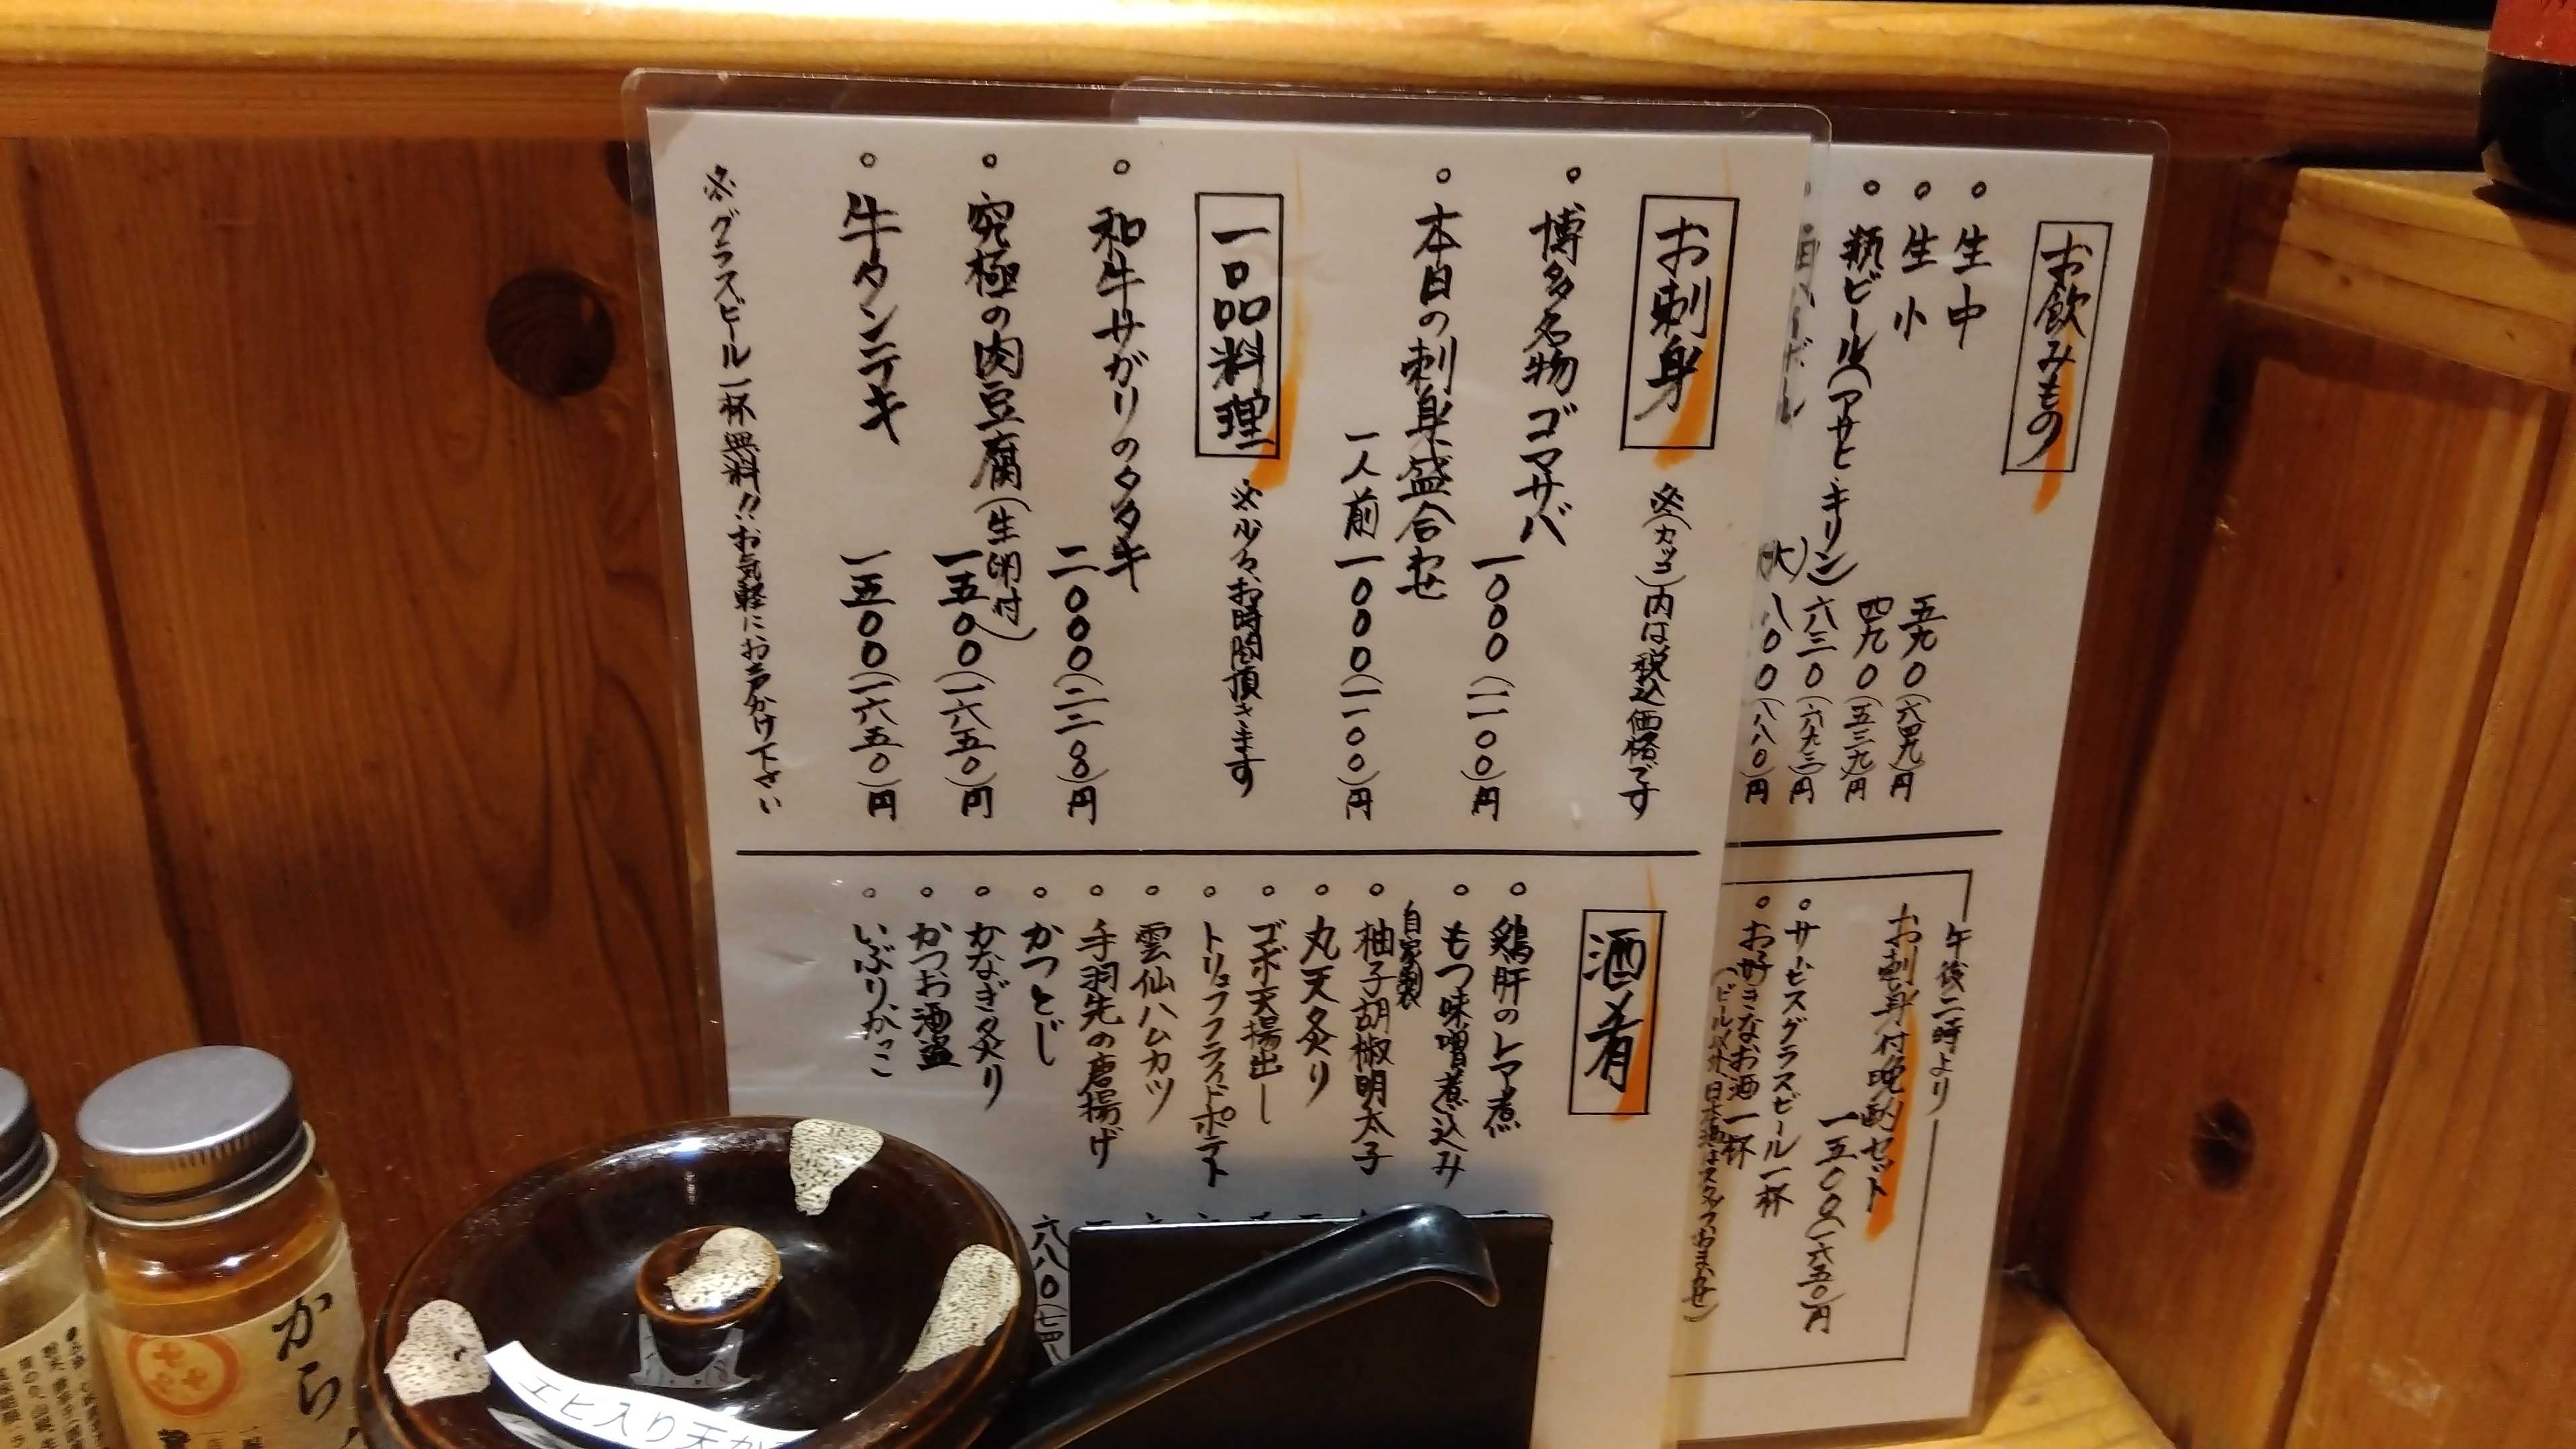 お飲みもの
。生中
五九〇(六四九)円
。生小
四九〇(五三九)円
。瓶ビール(アサヒ・キリン)
六三〇(六九三)円
八〇〇(八八〇)円
午後二時より
お刺身付晩酌セット
一五〇〇(一六五〇)円
。サービスグラスビール一杯
。お好きなお酒一杯
(ビール以外 日本酒はスタッフおまかせ)
お刺身
※(カッコ)内は税込価格です
。博多名物ゴマサバ
一〇〇〇(一一〇〇)円
。本日の刺身盛合わせ
一人前 一〇〇〇(一一〇〇)円
一品料理
※少々、お時間頂きます
。和牛サガリのタタキ
二〇〇〇(二二〇〇)円
。究極の肉豆腐(生卵付)
一五〇〇(一六五〇)円
。牛タンステキ
一五〇〇(一六五〇)円
※グラスビール一杯無料!!お気軽にお声かけ下さい
酒肴
。鶏肝のトマ煮
。もつ味噌煮込み
自家製
。柚子胡椒明太子
。丸天炙り
。ゴボ天揚出し
。トリュフフライドポテト
。雲仙ハムカツ
。手羽先の唐揚げ
。かつとじ
。かなぎ炙り
。かつお酒盗
。いぶりがっこ
六八〇(七四
から
エビ入り天か